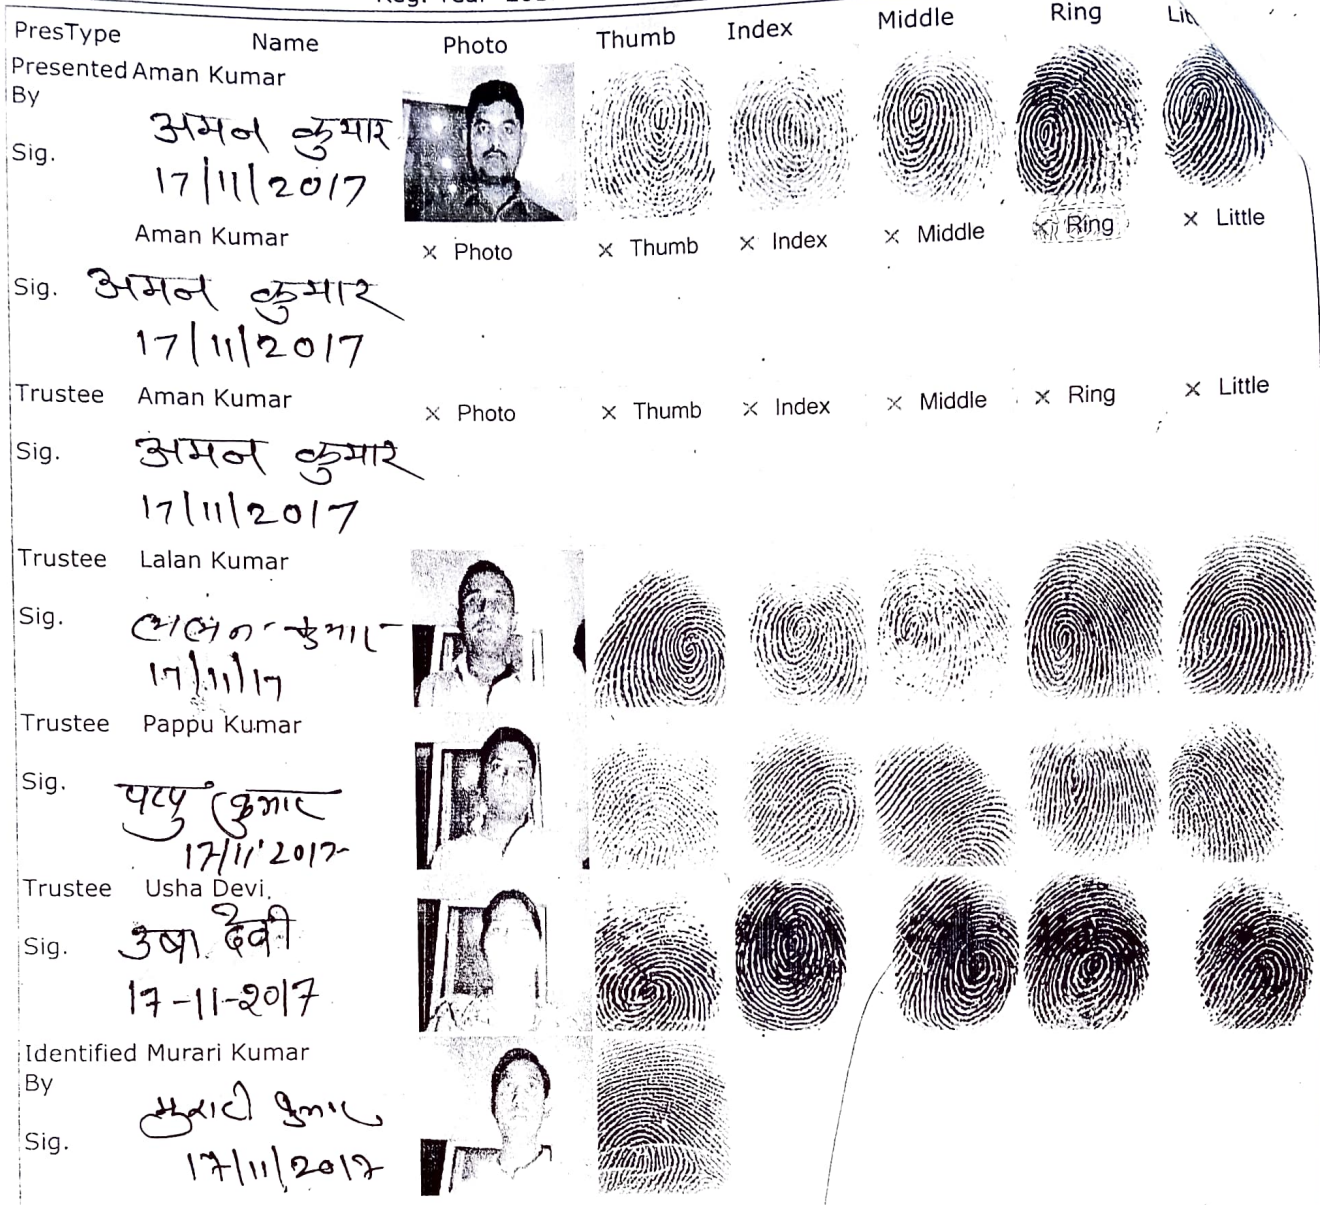 PresType Name Photo Thumb Index Middle Ring
Presented Aman Kumar
By
अमन कुमार
Sig.
17/11/2017
Aman Kumar × Photo × Thumb × Index × Middle × Ring × Little
Sig. अमन कुमार
17/11/2017
Trustee Aman Kumar × Photo × Thumb × Index × Middle × Ring × Little
Sig. अमन कुमार
17/11/2017
Trustee Lalan Kumar
Sig. लालन कुमार
17/11/17
Trustee Pappu Kumar
Sig. पप्पु कुमार
17/11/2017
Trustee Usha Devi
Sig. उषा देवी
17-11-2017
Identified Murari Kumar
By
मुरारी कुमार
Sig.
17/11/2017